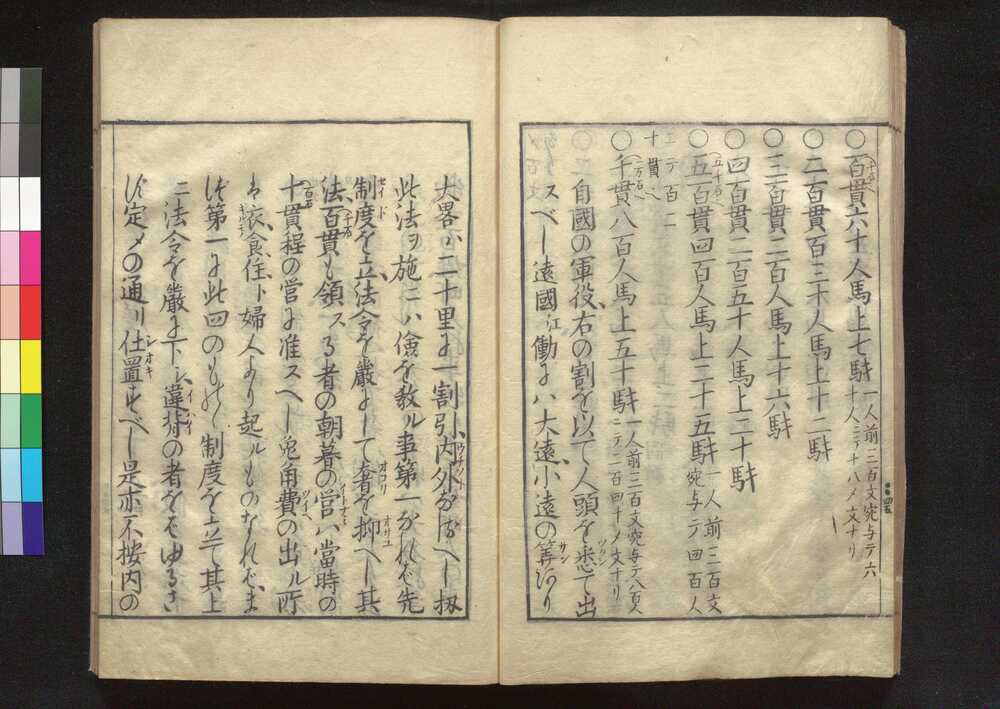 ○百貫六十人馬上七騎一人前三百文宛与テ六
十人ニテ十八〆文ナリ
○二百貫百三十人馬上十二騎
○三百貫二百人馬上十六騎
○四百貫二百五十人馬上二十騎
○五百貫四百人馬上二十五騎一人前三百文
宛与テ四百人
ニテ百二
十貫
○千貫八百人馬上五十騎一人前三百文宛与テ八百人
ニテ二百四十〆文ナリ
○自國の軍役右の割を以て人頭を悉て出
スベし遠國江働には大遠小遠の算あり
大畧は二十里に一割引内外なるへし扨
此法ヲ施ニハ儉を教ル事第一なれば先
制度を立法令を嚴にして奢を抑へし其
法百貫も領スる者の朝暮の営ハ當時の
十貫程の営に准スへし兎角費の出ル所
は衣食住ト婦人より起ルものなればま
づ第一に此四のもの制度を立て其上
ニ法令を嚴に下し違背の者をばゆるさ
ず定〆の通リ仕置すべし是亦不按内の